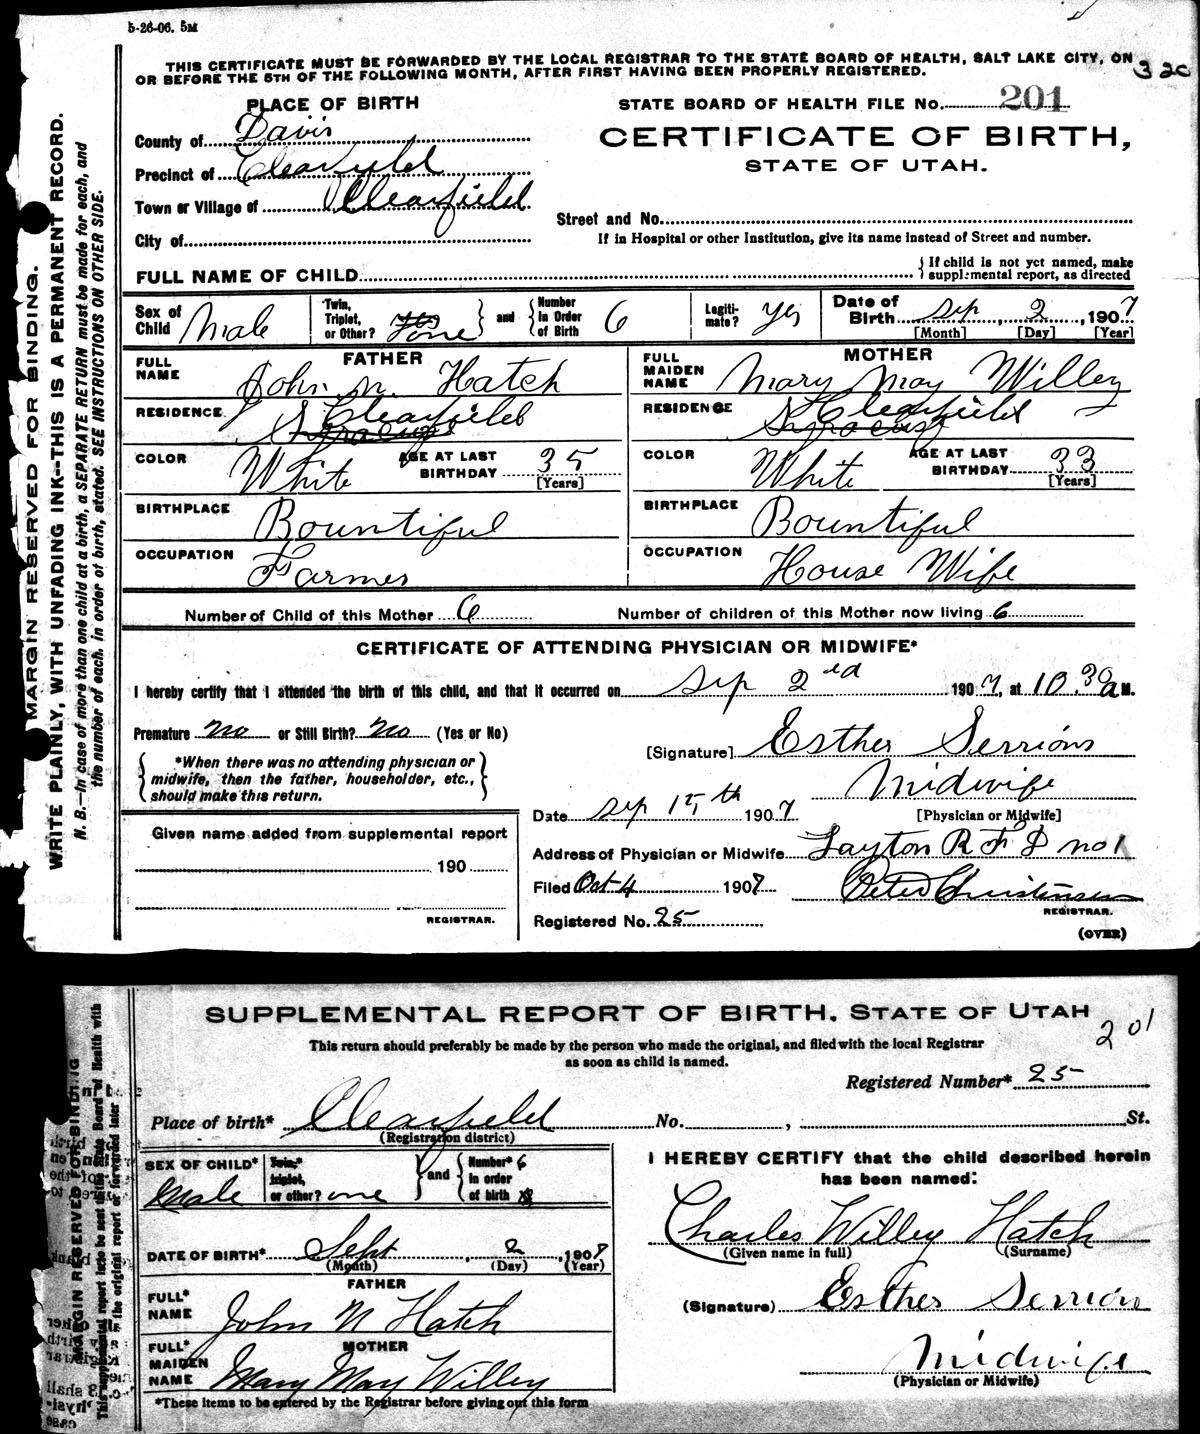 5-26-06. 5M
THIS CERTIFICATE MUST BE FORWARDED BY THE LOCAL REGISTRAR TO THE STATE BOARD OF HEALTH, SALT LAKE CITY, ON
OR BEFORE THE 5TH OF THE FOLLOWING MONTH, AFTER FIRST HAVING BEEN PROPERLY REGISTERED.
PLACE OF BIRTH
STATE BOARD OF HEALTH FILE No. 201
County of Davis
CERTIFICATE OF BIRTH,
Precinct of Clearfield
STATE OF UTAH.
Town or Village of Clearfield
Street and No.
City of
If in Hospital or other Institution, give its name instead of Street and number.
FULL NAME OF CHILD
{ If child is not yet named, make
supplemental report, as directed
Sex of Child Male
Twin, Triplet, or Other? one } and { Number in Order of Birth 6
Legiti-mate? yes
Date of Birth Sep 2, 1907
[Month] [Day] [Year]
FATHER
MOTHER
FULL NAME John N. Hatch
FULL MAIDEN NAME Mary May Willey
RESIDENCE Clearfield Syracuse
RESIDENCE Clearfield Syracuse
COLOR White AGE AT LAST BIRTHDAY 35 [Years]
COLOR White AGE AT LAST BIRTHDAY 33 [Years]
BIRTHPLACE Bountiful
BIRTHPLACE Bountiful
OCCUPATION Farmer
OCCUPATION House Wife
Number of Child of this Mother 6 Number of children of this Mother now living 6
CERTIFICATE OF ATTENDING PHYSICIAN OR MIDWIFE*
I hereby certify that I attended the birth of this child, and that it occurred on Sep 2nd 1907, at 10.30 a M.
Premature no or Still Birth? no (Yes or No)
[Signature] Esther Serrions
{ *When there was no attending physician or
midwife, then the father, householder, etc.,
should make this return. }
Midwife
[Physician or Midwife]
Date Sep 15th 1907
Given name added from supplemental report
190
REGISTRAR.
Address of Physician or Midwife Layton R F D no 1
Filed Oct 4 1907 Peter Christensen
REGISTRAR.
Registered No. 25
(OVER)
MARGIN RESERVED FOR BINDING.
WRITE PLAINLY, WITH UNFADING INK--THIS IS A PERMANENT RECORD.
N. B.—In case of more than one child at a birth, a SEPARATE RETURN must be made for each, and
the number of each, in order of birth, stated. SEE INSTRUCTIONS ON OTHER SIDE.
SUPPLEMENTAL REPORT OF BIRTH. STATE OF UTAH
201
This return should preferably be made by the person who made the original, and filed with the local Registrar
as soon as child is named.
Registered Number* 25
Place of birth* Clearfield No. , St.
(Registration district)
SEX OF CHILD* Male
Twin,* triplet, or other? one } and { Number* in order of birth 6
I HEREBY CERTIFY that the child described herein
has been named:
Charles Willey Hatch
(Given name in full) (Surname)
DATE OF BIRTH* Sept , 2 , 1907
(Month) (Day) (Year)
FATHER
FULL* NAME John N Hatch
(Signature) Esther Serrion
MOTHER
FULL* MAIDEN NAME Mary May Willey
Midwife
(Physician or Midwife)
*These items to be entered by the Registrar before giving out this form
MARGIN RESERVED FOR BINDING